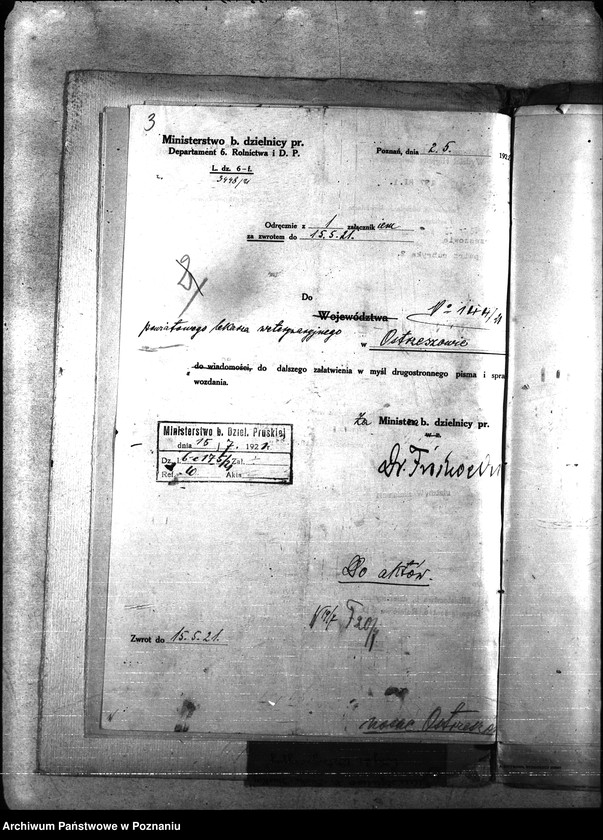 3
Ministerstwo b. dzielnicy pr.
Departament 6. Rolnictwa i D. P.
Poznań, dnia 2.5. 192
L. dz. 6-I.
3448/21
Odręcznie z 1 załącznikiem
za zwrotem do 15.5.21.
Do
Województwa
No 144/21
powiatowego lekarza weterynaryjnego
w Ostrzeszowie
do wiadomości, do dalszego załatwienia w myśl drugostronnego pisma i spra
wozdania.
Za Ministra b. dzielnicy pr.
Ministerstwo b. Dziel. Pruskiej
dnia 15/7. 1921r.
Dz. Zał.
Ref. 10 Akta
Dr.
Do aktów.
Zwrot do 15.5.21.
Archiwum Państwowe w Poznaniu